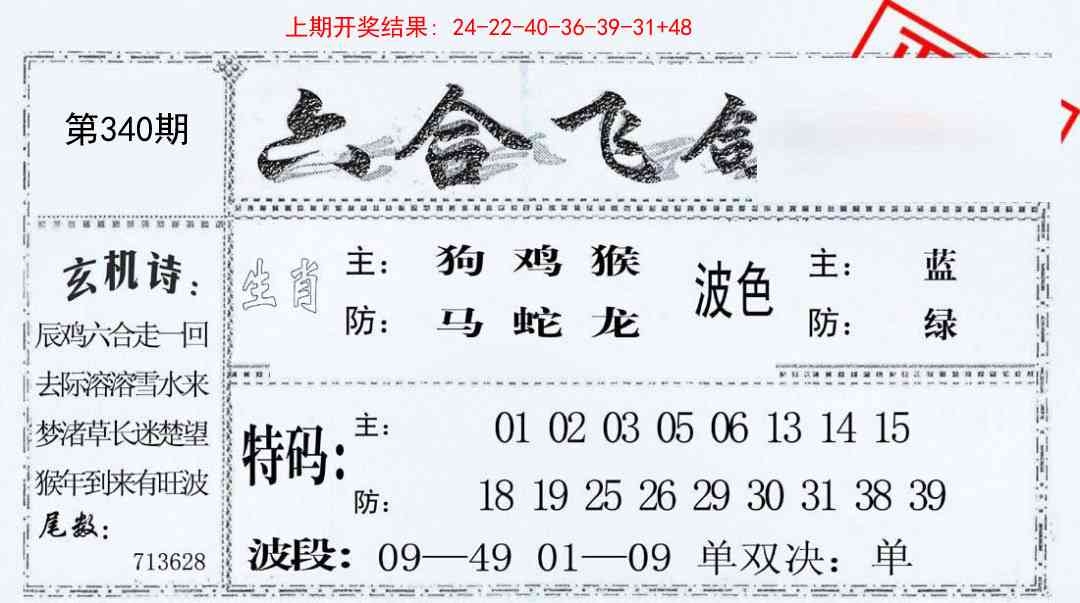 上期开奖结果: 24-22-40-36-39-31+48
第340期
六合飞
玄机诗:
辰鸡六合走一回
去际溶溶雪水来
梦渚草长迷楚望
猴年到来有旺波
尾数:
713628
生肖
主: 狗 鸡 猴
防: 马 蛇 龙
波色
主: 蓝
防: 绿
特码:
主: 01 02 03 05 06 13 14 15
防: 18 19 25 26 29 30 31 38 39
波段: 09—49 01—09 单双决: 单